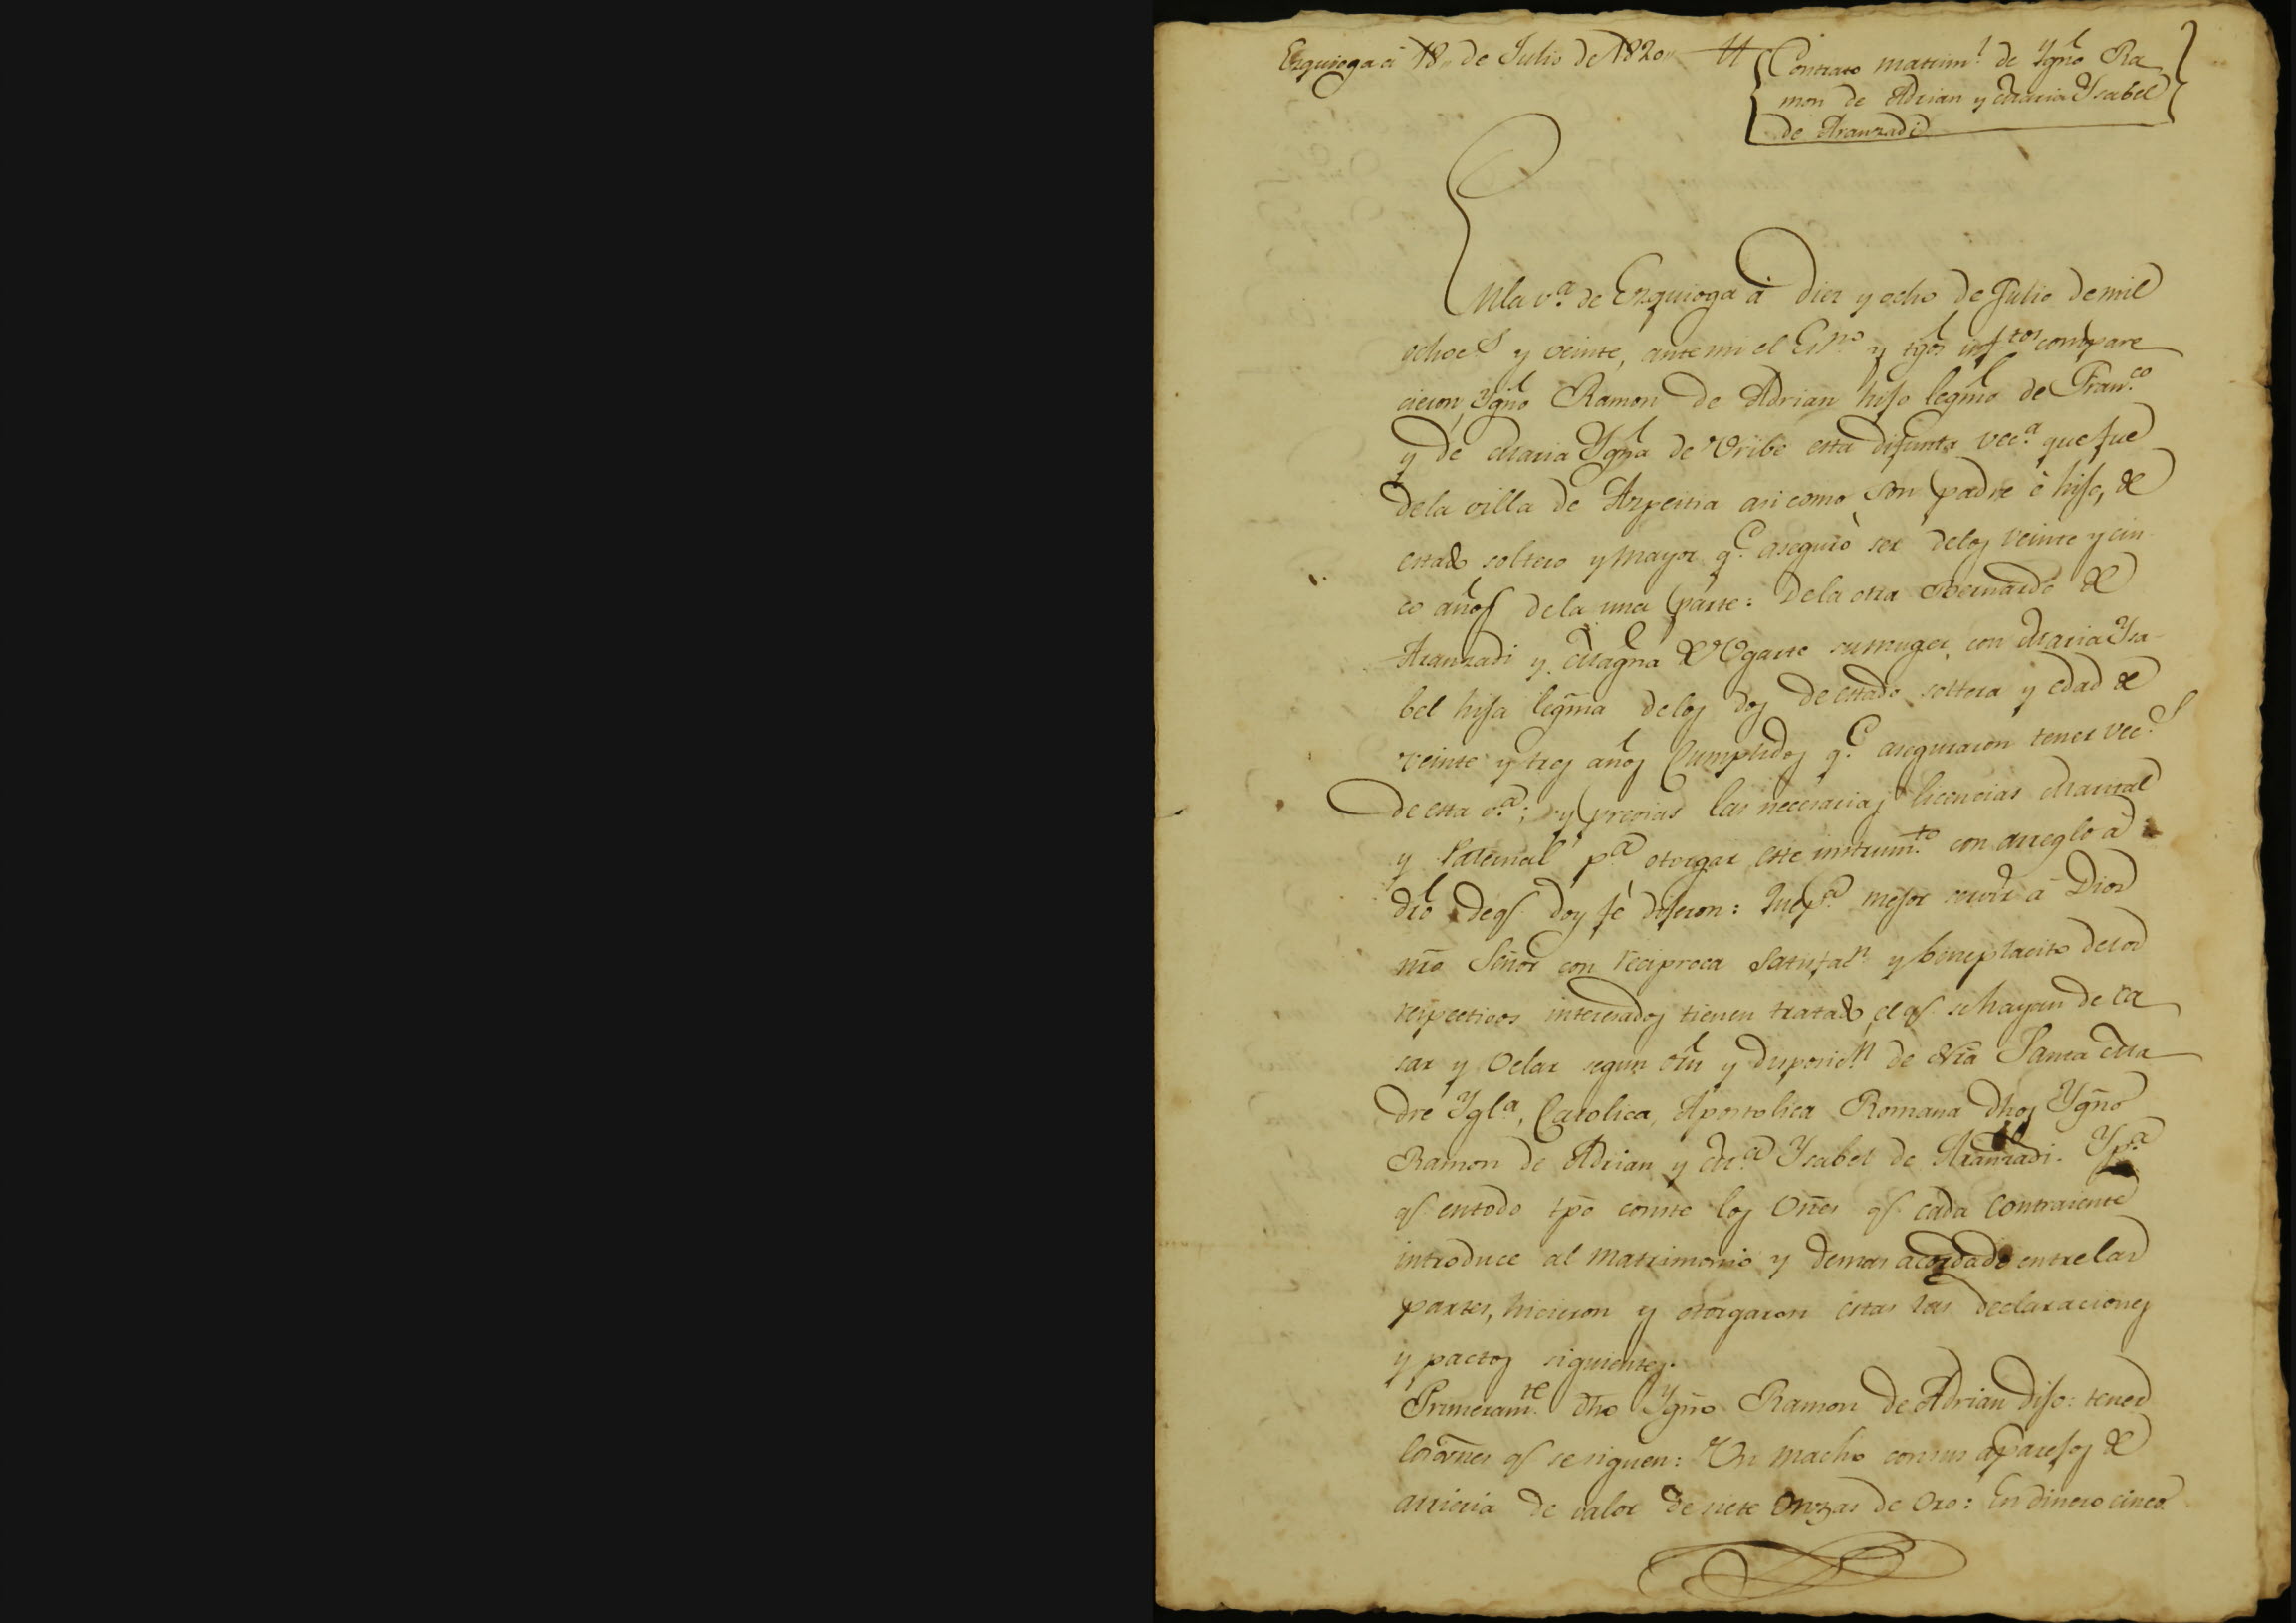 Ezquioga á 18,, de Julio de 1820,,
Contrato matrim.l de Ygño Ra
mon de Adrian y Maria Ysabel
de Aranzadi
Enla v.a de Ezquioga á diez y ocho de Julio de mil
ochoc.s y veinte, ante mi el Es.no y tgos inf.tos compare
cieron, Ygño Ramon de Adrian hijo legmo de Fran.co
y de Maria Ygña de Vribe esta difunta vec.a que fue
dela villa de Azpeitia asi como son padre è hijo, de
estado soltero y mayor q.e aseguró ser delos veinte y cin
co años dela una parte: Dela otra Bernardo de
Aranzadi y Magña de Vgarte su muger, con Maria Ysa
bel hija legma delos dos de estado soltera y edad de
veinte y tres años Cumplidos q.e aseguraron tener vec.s
de esta v.a; y previas las necesarias licencias Marital
y Paternal p.a otorgar este instrum.to con arreglo á
dro de q.e doy fé dijeron: Que p.a mejor servir á Dios
nro Señor con reciproca Satisfa.n y beneplacito de sus
respectivos interesados tienen tratado, el q.e se hayan de ca
sar y Velar segun orn y disposic.n de Nra Santa Ma
dre Ygl.a, Catolica, Apostolica Romana dhos Ygño
Ramon de Adrian y M.a Ysabel de Aranzadi. Y p.a
q.e entodo tpo conste los Vnes q.e cada Contraiente
introduce al Matrimonio y demas acordado entrelas
partes, hicieron y otorgaron estas las declaraciones
y pactos siguientes.
Primeram.te dho Ygño Ramon de Adrian dijo: tener
los vnes q.e se siguen: Vn macho con sus aparejos de
arrieria de valor de siete Onzas de Oro: En dinero cinco